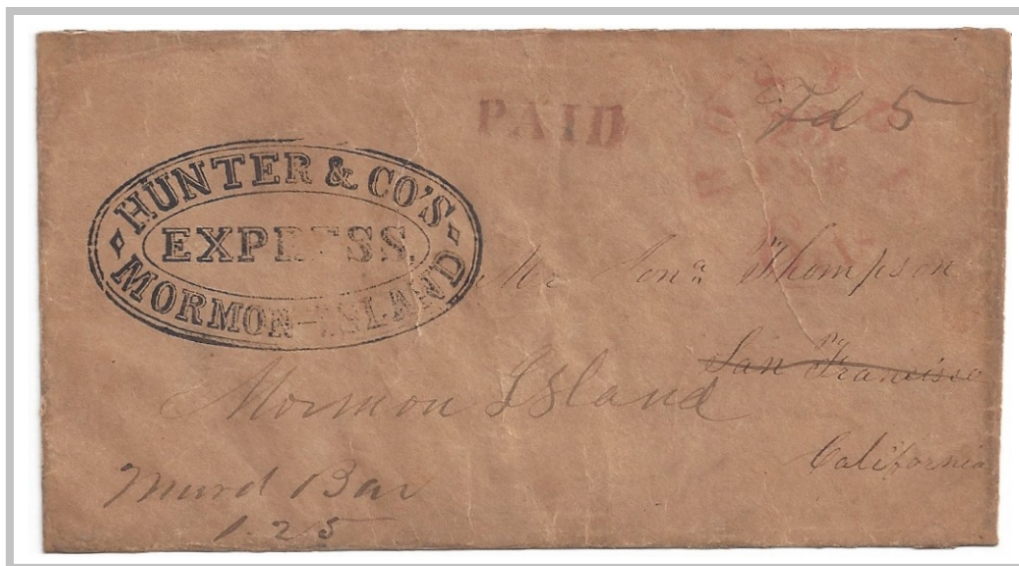 PAID
Fd 5
HUNTER & CO'S
EXPRESS.
MORMON-ISLAND
Mr Jonª Thompson
San Francisco
Mormon Island
California
Bar
1.25